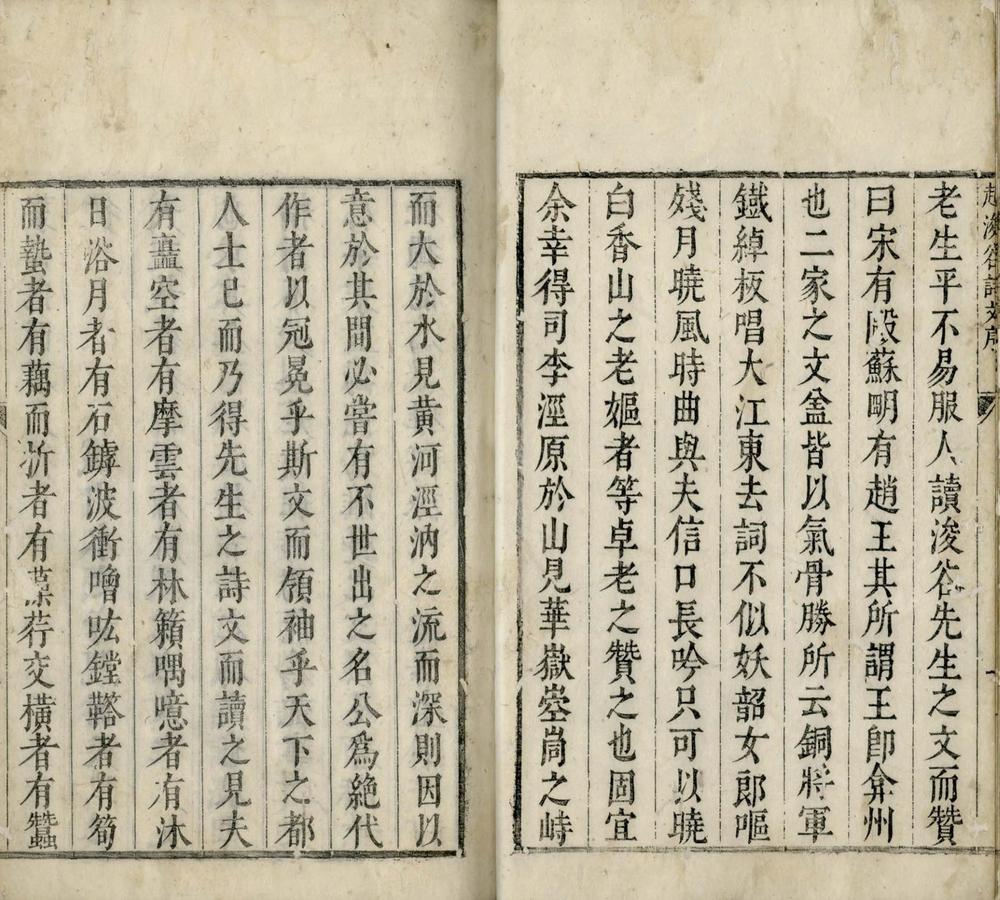 趙浚谷詩文序
老生平不易服人讀浚谷先生之文而贊
曰宋有殴蘇明有趙王其所謂王卽弇州
也二家之文葢皆以氣骨勝所云銅將軍
鐵綽板唱大江東去詞不似妖韶女郎嘔
殘月曉風時曲與夫信口長吟只可以曉
白香山之老嫗者等卓老之贊之也固宜
余幸得司李涇原於山見華嶽崆峒之峙
而大於水見黃河涇汭之流而深則因以
意於其間必嘗有不世出之名公爲絕代
作者以冠冕乎斯文而領袖乎天下之都
人士已而乃得先生之詩文而讀之見夫
有矗空者有摩雲者有林籟喁噫者有沐
日浴月者有石罅波衝噌吰鏜鞳者有筍
而蟄者有藕而折者有藻荇交橫者有蠶